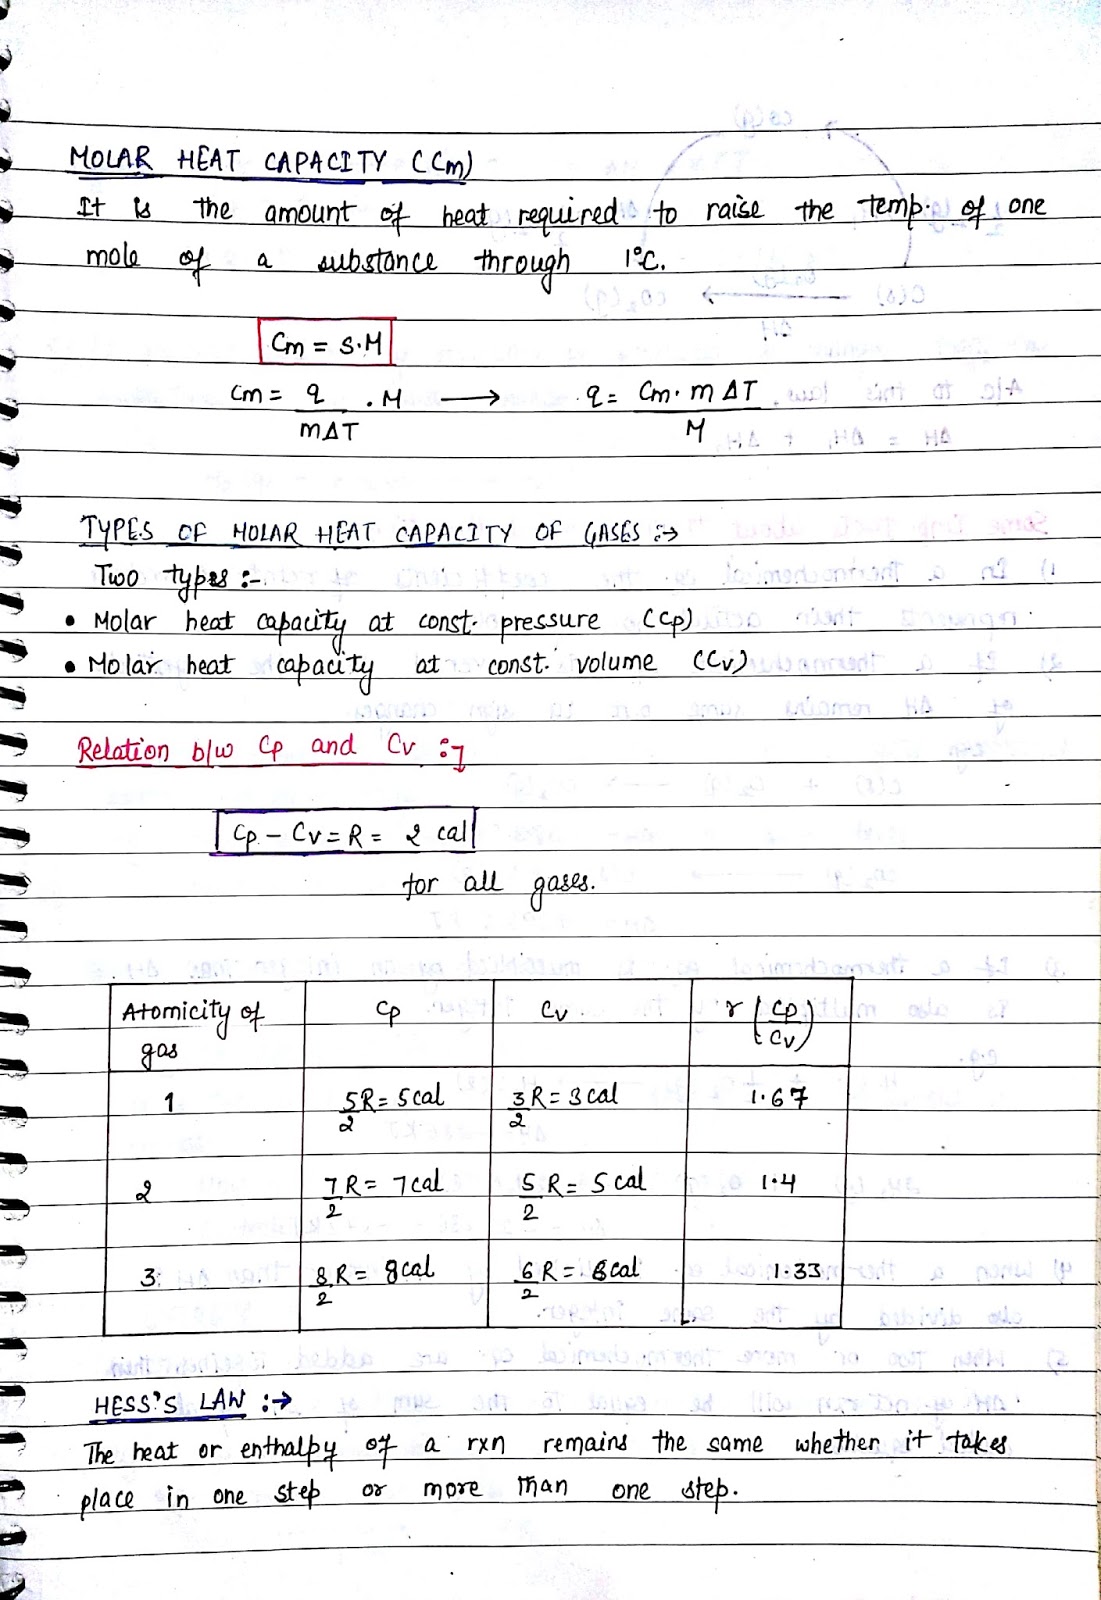 MOLAR HEAT CAPACITY (Cm)
It is the amount of heat required to raise the temp. of one
mole of a substance through 1°C.
Cm = S.M
Cm = q/mΔT . M ⟶ q = Cm. m ΔT/M
TYPES OF MOLAR HEAT CAPACITY OF GASES :→
Two types :-
• Molar heat capacity at const. pressure (Cp)
• Molar heat capacity at const. volume (Cv)
Relation b/w Cp and Cv :-
Cp - Cv = R = 2 cal
for all gases.
Atomicity of gas Cp Cv r (Cp/Cv)
1 5/2 R = 5cal 3/2 R = 3cal 1.67
2 7/2 R = 7cal 5/2 R = 5cal 1.4
3 8/2 R = 8cal 6/2 R = cal 1.33
HESS'S LAW :→
The heat or enthalpy of a rxn remains the same whether it takes
place in one step or more than one step.